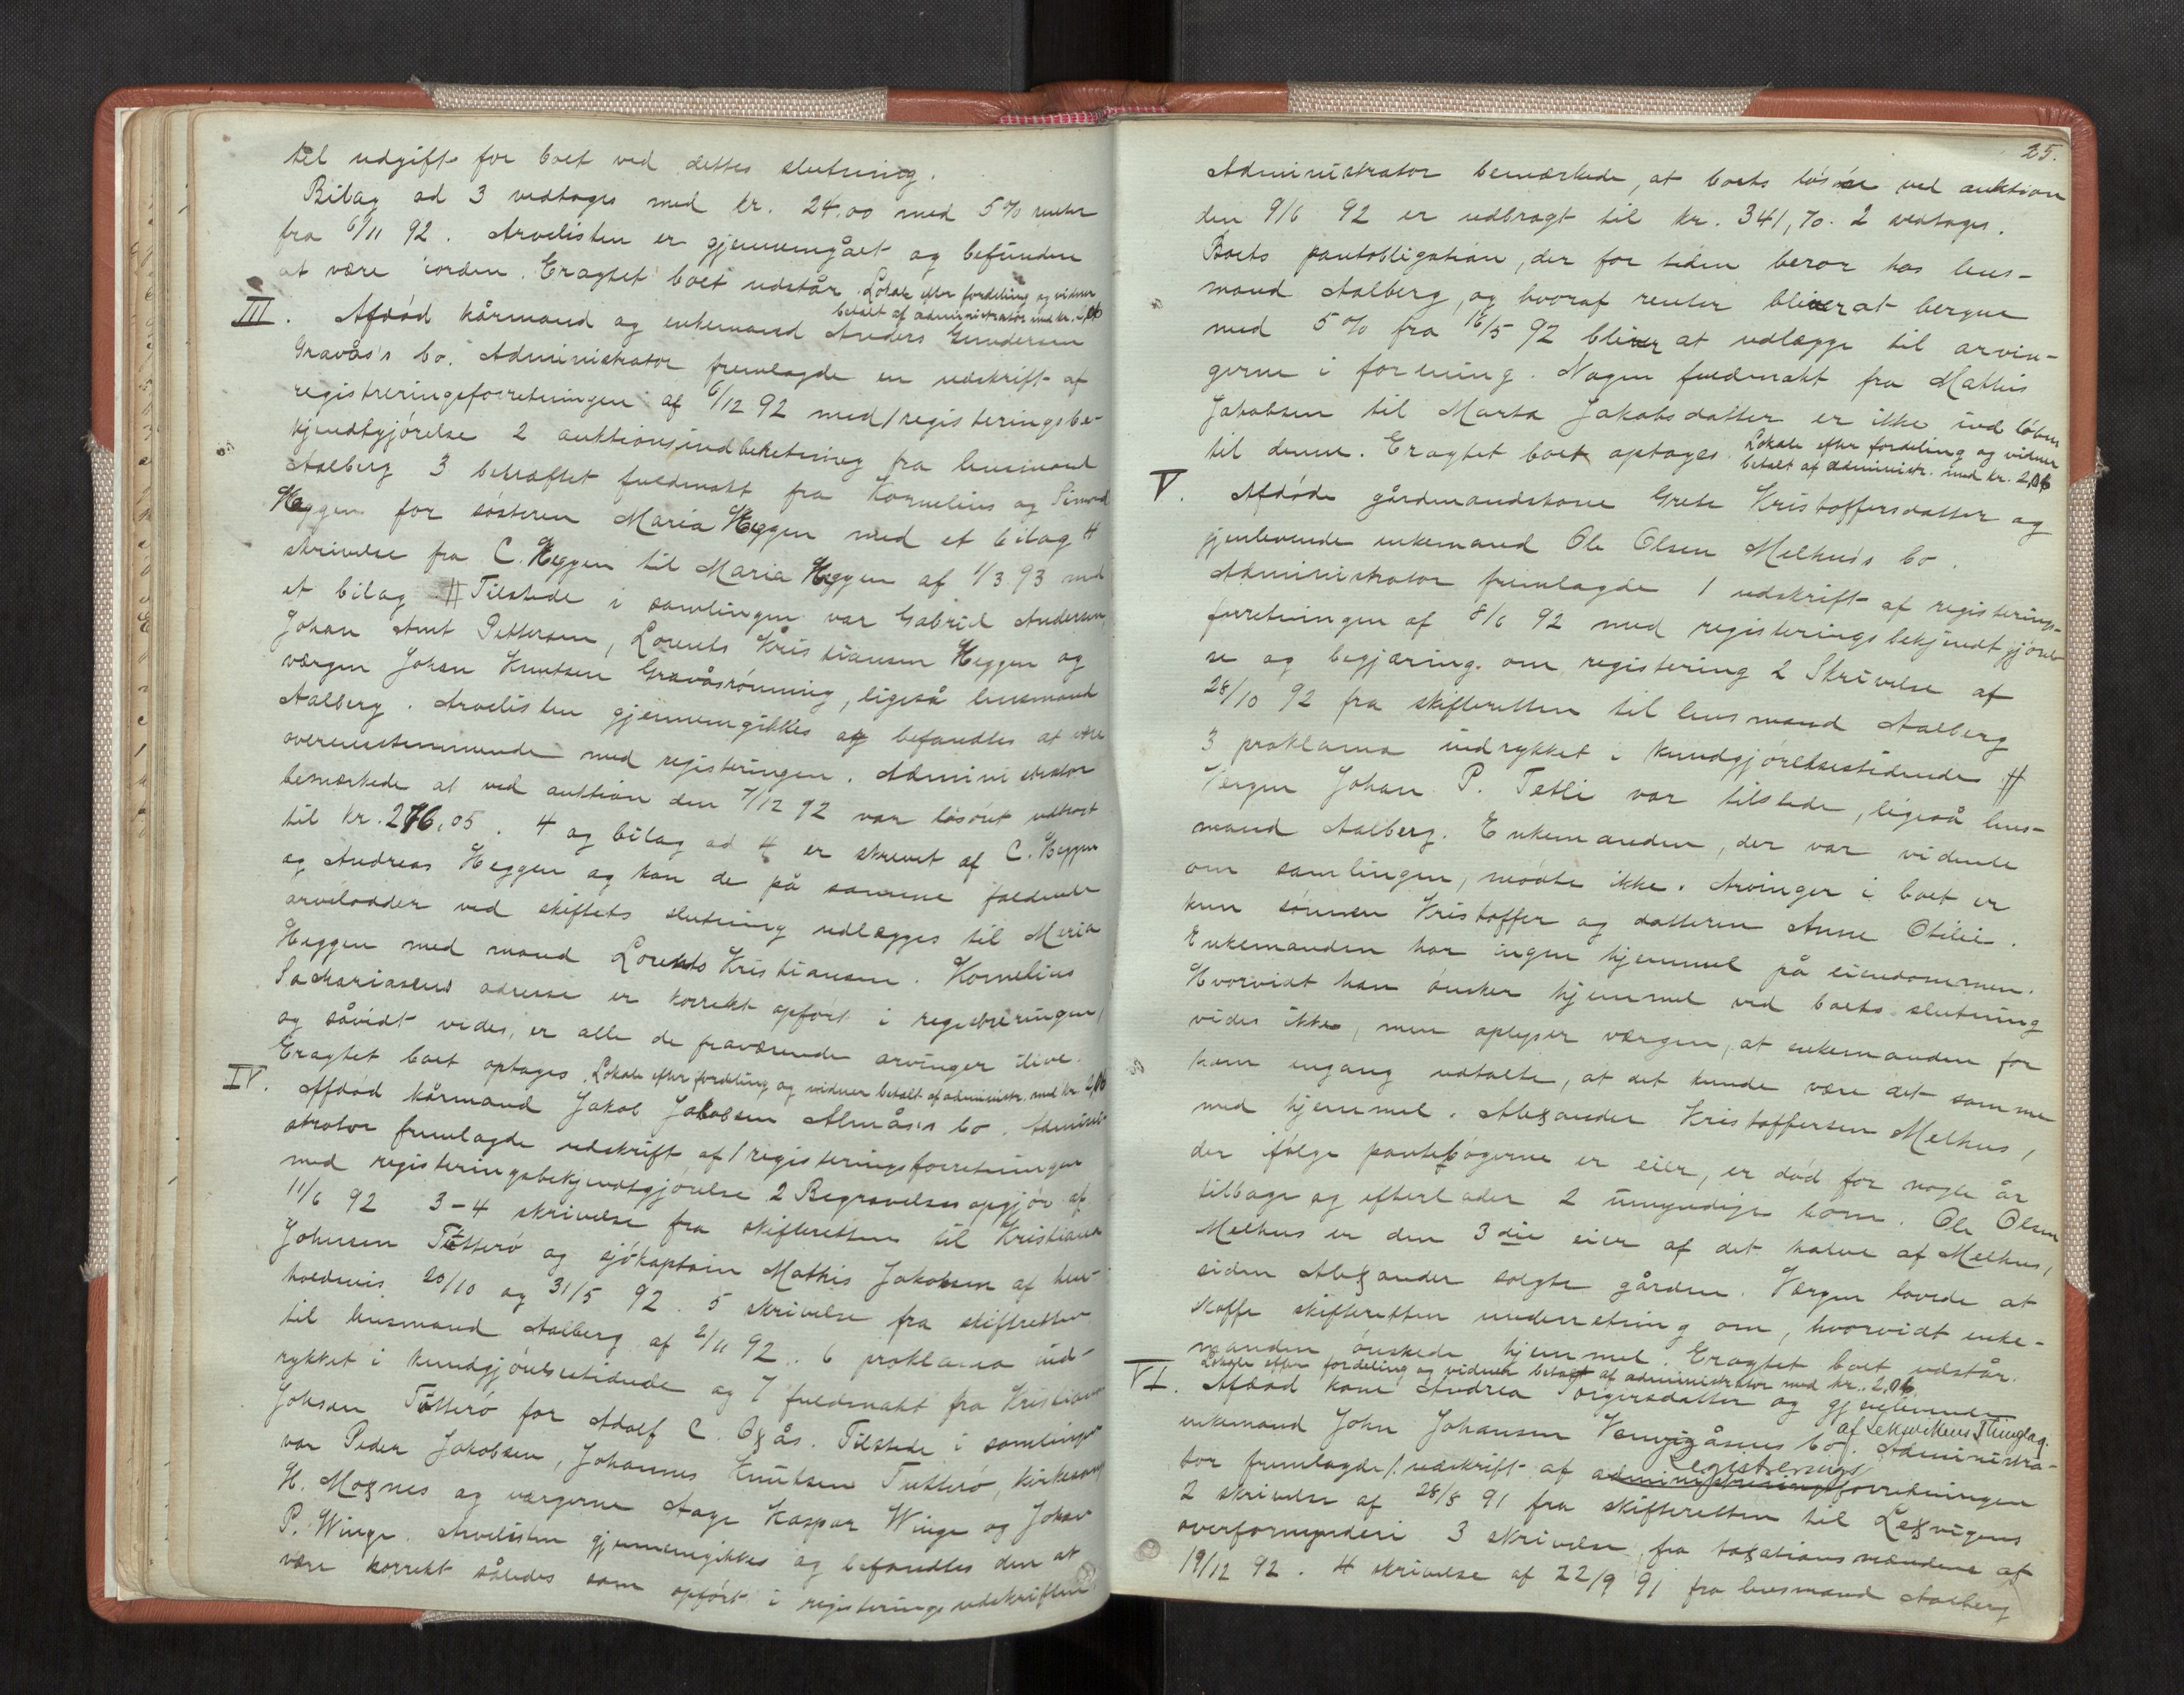 til udgift for boet ved dettes slutning.
Bilag ad 3 vedtoges med kr. 24.00 med 5% renter
fra 6/11 92. Arvelisten er gjennemgået og befunden
at være iorden. Eragtet boet udstår. Lokale efter fordeling og vidner
betalt af administrator med kr. 2,06
III. Afdød kårmand og enkemand Anders Gundersen
Gravås's bo. Administrator fremlagde en udskrift af
registreringsforretningen af 6/12 92 med 1 registeringsbe-
kjendtgjörelse 2 auktionsindberetning fra lensmand
Aalberg 3 bekræftet fuldmakt fra Kornelius og Simond
Heggen for søsteren Maria Heggen med et bilag 4
skrivelse fra C. Heggen til Maria Heggen af 1/3 93 med
et bilag. # Tilstede i samlingen var Gabriel Andersen,
Johan Arnt Pettersen, Lorents Kristiansen Heggen og
værgen Johan Knutsen Gravåsrönning, ligeså lensmand
Aalberg. Arvelisten gjennemgikkes og befandtes at være
overensstemmende med registeringen. Administrator
bemærkede at ved auktion den 7/12 92 var lösöret udbragt
til kr. 276,05. 4 og bilag ad 4 er skrevet af C. Heggen
og Andreas Heggen og kan de på samme faldende
arvelodder ved skiftets slutning udlægges til Maria
Heggen med mand Lorents Kristiansen. Kornelius
Sakariasens adresse er korrekt opfört i registreringen,
og såvidt vides, er alle de fraværende arvinger ilive.
Eragtet boet optages. Lokale efter fordeling og vidner betalt af administr. med kr. 2,06
IV. Afdöd kårmand Jakob Jakobsen Almås's bo. Admini-
strator fremlagde udskrift af 1 registeringsforretningen
med registeringsbekjendtgjörelse 2 Begravelsesopgjör af
11/6 92 3-4 skrivelse fra skifteretten til Kristiana
Johnsen Tutterö og sjökaptain Mathis Jakobsen af hen-
holdsvis 20/10 og 31/5 92. 5 skrivelse fra skifteretten
til lensmand Aalberg af 2/11 92. 6 proklama ind-
rykket i kundgjörelsestidende og 7 fuldmakt fra Kristiana
Johsen Tutterö for Adolf C. Oxås. Tilstede i samlingen
var Peder Jakobsen, Johannes Knutsen Tutterö, kirkesanger
H. Moxnes og værgerne Aage Kaspar Winge og Johan
P. Winge. Arvelisten gjennemgikkes og befandtes den at
være korrekt således som opfört i registeringsudskriften
25.
Administrator bemærkede, at boets lösöre ved auktion
den 9/6 92 er udbragt til kr. 341,70. 2 vedtoges.
Boets pantobligation, der for tiden beror hos lens-
mand Aalberg, og hvoraf renter bliver at bergne
med 5% fra 16/5 92 bliver at udlægge til arvin-
gerne i forening. Nogen fuldmakt fra Mathis
Jakobsen til Marta Jakobsdatter er ikke indlöben
til denne. Eragtet boet optages. Lokale efter fordeling og vidner
betalt af administr. med kr. 2,06
V. Afdöde gårdmandskone Grete Kristoffersdatter og
gjenlevende enkemand Ole Olsen Melhus's bo.
Administrator fremlagde 1 udskrift af registerings-
forretningen af 8/6 92 med registeringsbekjendtgjörel-
se og begjæring om registering 2 Skrivelse af
28/10 92 fra skifteretten til lensmand Aalberg
3 proklama indrykket i kundgjörelsestidende #
Vergen Johan P. Tetli var tilstede, ligeså lens-
mand Aalberg. Enkemanden, der var vidende
om samlingen, mödte ikke. Arvinger i boet er
kun sönnen Kristoffer og datteren Anne Otilie.
Enkemanden har ingen hjemmel på eiendommen.
Hvorvidt han önsker hjemmel ved boets slutning
vides ikke, men oplyser værgen, at enkemanden for
ham engang udtalte, at det kunde være det samme
med hjemmel. Alexander Kristoffersen Melhus,
der ifölge pantebögerne er eier, er död for nogle år
tilbage og efterlader 2 umyndige börn. Ole Olsen
Melhus er den 3die eier af det halve af Melhus,
siden Alexander solgte gården. Værgen lovede at
skaffe skifteretten underretning om, hvorvidt enke-
manden önskede hjemmel. Eragtet boet udstår.
Lokale efter fordeling og vidner betalt af administrator med kr. 2,06.
VI. Afdöd kone Andrea Torgersdatter og gjenlevende
enkemand John Johansen Vemgigåsens bo af Leksvikens Thinglag. Administra-
tor fremlagde 1. udskrift af Registerings forretningen
2 skrivelse af 28/8 91 fra skifteretten til Lexvigens
overformynderi 3 skrivelse fra taxationsmændene af
19/12 92. 4 skrivelse af 22/9 91 fra lensmand Aalberg